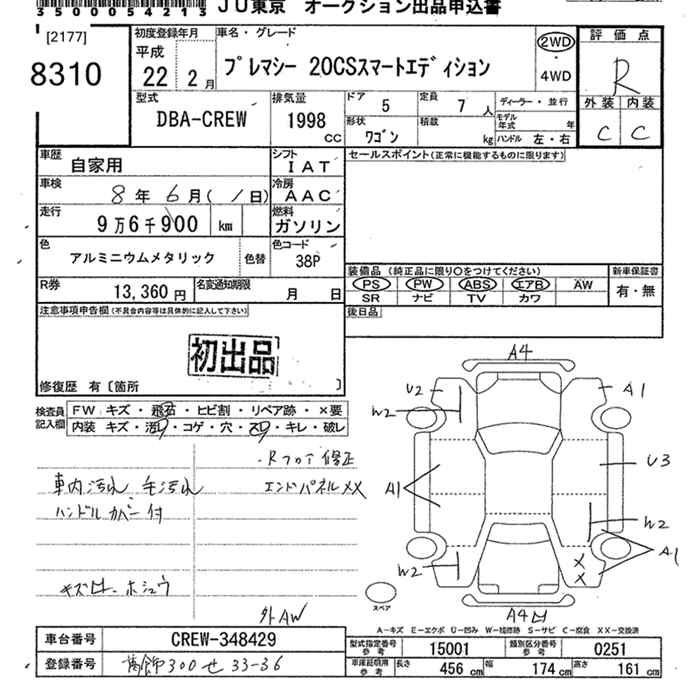 3500054213 JU東京 オークション出品申込書
[2177]
8310
初度登録年月 車名・グレード
平成 22 年 2月
プレマシー 20CSスマートエディション
2WD
・4WD
評価点
R
外装 内装
C C
型式 排気量 ドア 定員 ディーラー・並行
DBA-CREW 1998 CC 5 7人
形状 積載 モデル年式 年
ワゴン kg ハンドル 左・右
車歴 自家用 シフト IAT セールスポイント(正常に機能するものに限ります)
車検 8年 6月( 1日) 冷房 AAC
走行 9万6千900 km 燃料 ガソリン
色 アルミニウムメタリック 色替 色コード 38P
装備品 (純正品に限り○をつけてください) 新車保証書
PS PW ABS エアB AW 有・無
SR ナビ TV カワ
R券 13,360円 名変通知期限 月 日
後日品
注意事項申告欄(不具合内容等は具体的に記入して下さい)
初出品
修復歴 有〔箇所 〕
検査員記入欄 FW キズ・飛石・ヒビ割・リペア跡・×要
内装 キズ・汚レ・コゲ・穴・スレ・キレ・破レ
・Rフロア修正
車内汚れ 毛汚れ エンドパネルXX
ハンドルカバー付
外AW
A4
U2 A1
W2
A1 U3
W2
W2 A1
XX
スペア A4凹
A-キズ E-エクボ U-凹み W-補修跡 S-サビ C-腐食 XX-交換済
車台番号 CREW-348429 型式指定番号 参考 15001 類別区分番号 参考 0251
登録番号 葛飾300せ33-36 車庫証明用 参考 長さ 456 cm 幅 174 cm 高さ 161 cm